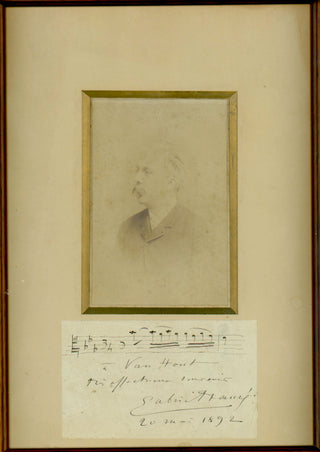 à Van Hout
très affectueux souvenir
Gabriel Fauré
20 mai 1892